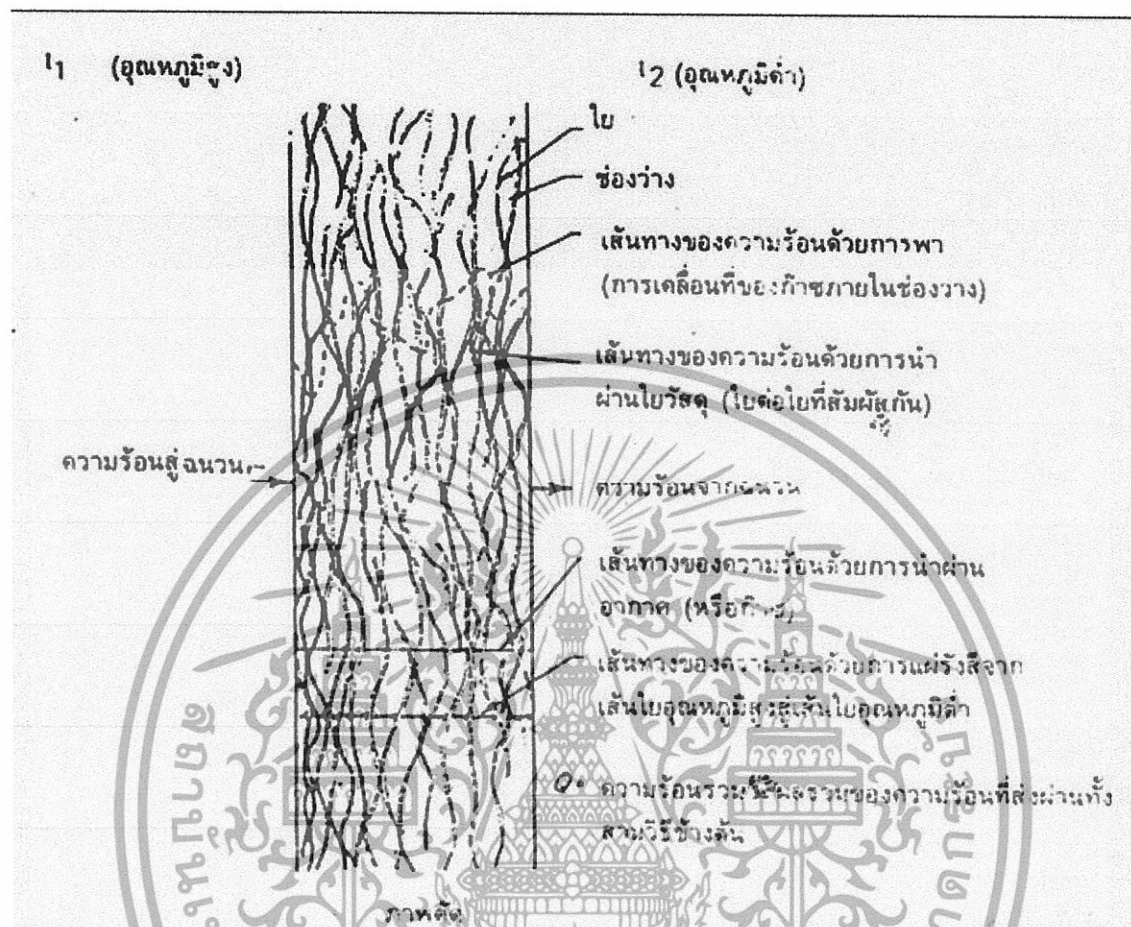 t1 (อุณหภูมิสูง)
t2 (อุณหภูมิต่ำ)
ใย
ช่องว่าง
เส้นทางของความร้อนด้วยการพา
(การเคลื่อนที่ของก๊าซภายในช่องวาง)
เส้นทางของความร้อนด้วยการนำ
ผ่านใยวัสดุ (ใยต่อใยที่สัมผัสกัน)
ความร้อนสู่ฉนวน
ความร้อนจากฉนวน
เส้นทางของความร้อนด้วยการนำผ่าน
อากาศ (หรือก๊าซ)
เส้นทางของความร้อนด้วยการแผ่รังสีจาก
เส้นใยอุณหภูมิสูงสู่เส้นใยอุณหภูมิต่ำ
Q = ความร้อนรวม ผลรวมของความร้อนที่ส่งผ่านทั้ง
สามวิธีข้างต้น
ภาพตัด